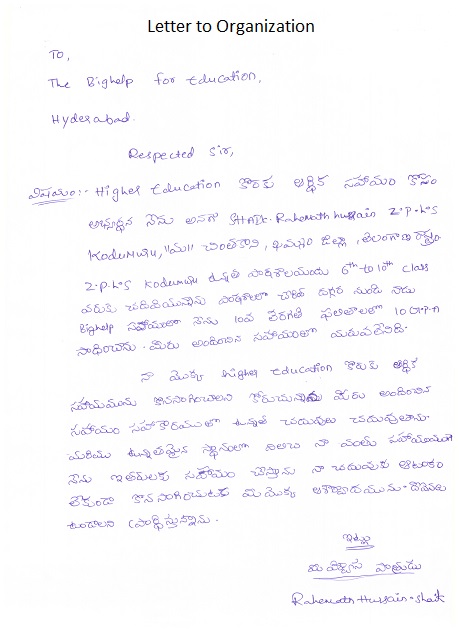 Letter to Organization
To,
The Bighelp for Education,
Hyderabad.
Respected Sir,
విషయం:- Higher Education కొరకు ఆర్థిక సహాయం కోసం
అభ్యర్థన నేను అనగా SHAIK. Rahemath hussain Z.P.H.S
Kodumuru, "మ" చింతకాని, ఖమ్మం జిల్లా, తెలంగాణ రాష్ట్రం
Z.P.H.S Kodumuru ఉన్నత పాఠశాలయందు 6th to 10th class
వరకు చదివియున్నాను
Bighelp సహాయంతో నేను 10వ తరగతి ఫలితాలలో 10 G.P.A
సాధించాను. మీరు అందించిన సహాయంతో మరువలేనిది.
నా యొక్క Higher Education కొరకు ఆర్థిక
సహాయమును కొనసాగించాలని కోరుచున్నాను మీరు అందించిన
సహాయం సహకారములతో ఉన్నత చదువులు చదువుతాను.
మరియు ఉన్నతమైన స్థానంలో నిలిచి నా వంతు సహాయముగా
నేను ఇతరులకు సహాయం చేస్తాను నా చదువుకు ఆటంకం
లేకుండా కొనసాగించుటకు మీ యొక్క ఆశీర్వాదమును-దీవెనలు
ఉండాలని ప్రార్థిస్తున్నాను.
ఇట్లు
మీ విశ్వాస పాత్రుడు
Rahemath Hussain-Shaik